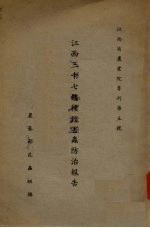 江西省農業院專刊第五號
江西三年七縣稻蝗害蟲防治報告
農藝部昆蟲組編